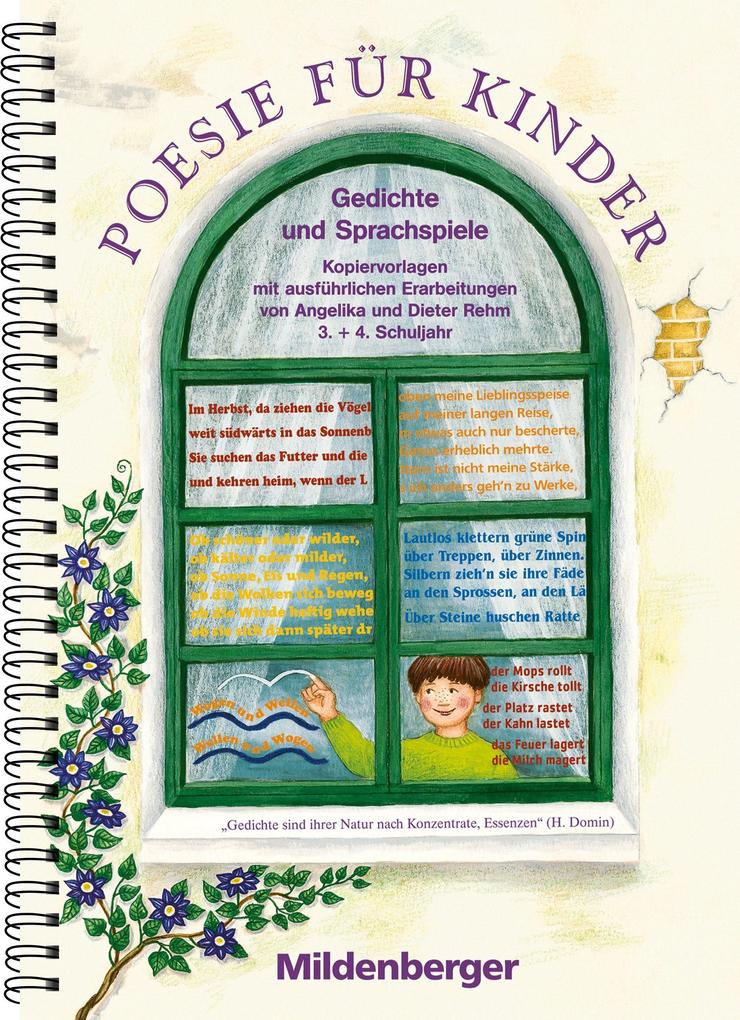 POESIE FÜR KINDER
Gedichte
und Sprachspiele
Kopiervorlagen
mit ausführlichen Erarbeitungen
von Angelika und Dieter Rehm
3. + 4. Schuljahr
Im Herbst, da ziehen die Vögel
weit südwärts in das Sonnenb
Sie suchen das Futter und die
und kehren heim, wenn der L
oben meine Lieblingsspeise
auf meiner langen Reise,
auch nur bescherte,
erheblich mehrte.
ist nicht meine Stärke,
ich anders geh'n zu Werke,
Ob schöner oder wilder,
ob kälter oder milder,
ob Sonne, Eis und Regen,
ob die Wolken sich beweg
ob die Winde heftig wehe
ob sie sich dann später dr
Lautlos klettern grüne Spin
über Treppen, über Zinnen.
Silbern zieh'n sie ihre Fäde
an den Sprossen, an den Lä
Über Steine huschen Ratte
Wogen und Wellen
Wellen und Wogen
der Mops rollt
die Kirsche tollt
der Platz rastet
der Kahn lastet
das Feuer lagert
die Milch magert
„Gedichte sind ihrer Natur nach Konzentrate, Essenzen“ (H. Domin)
Mildenberger